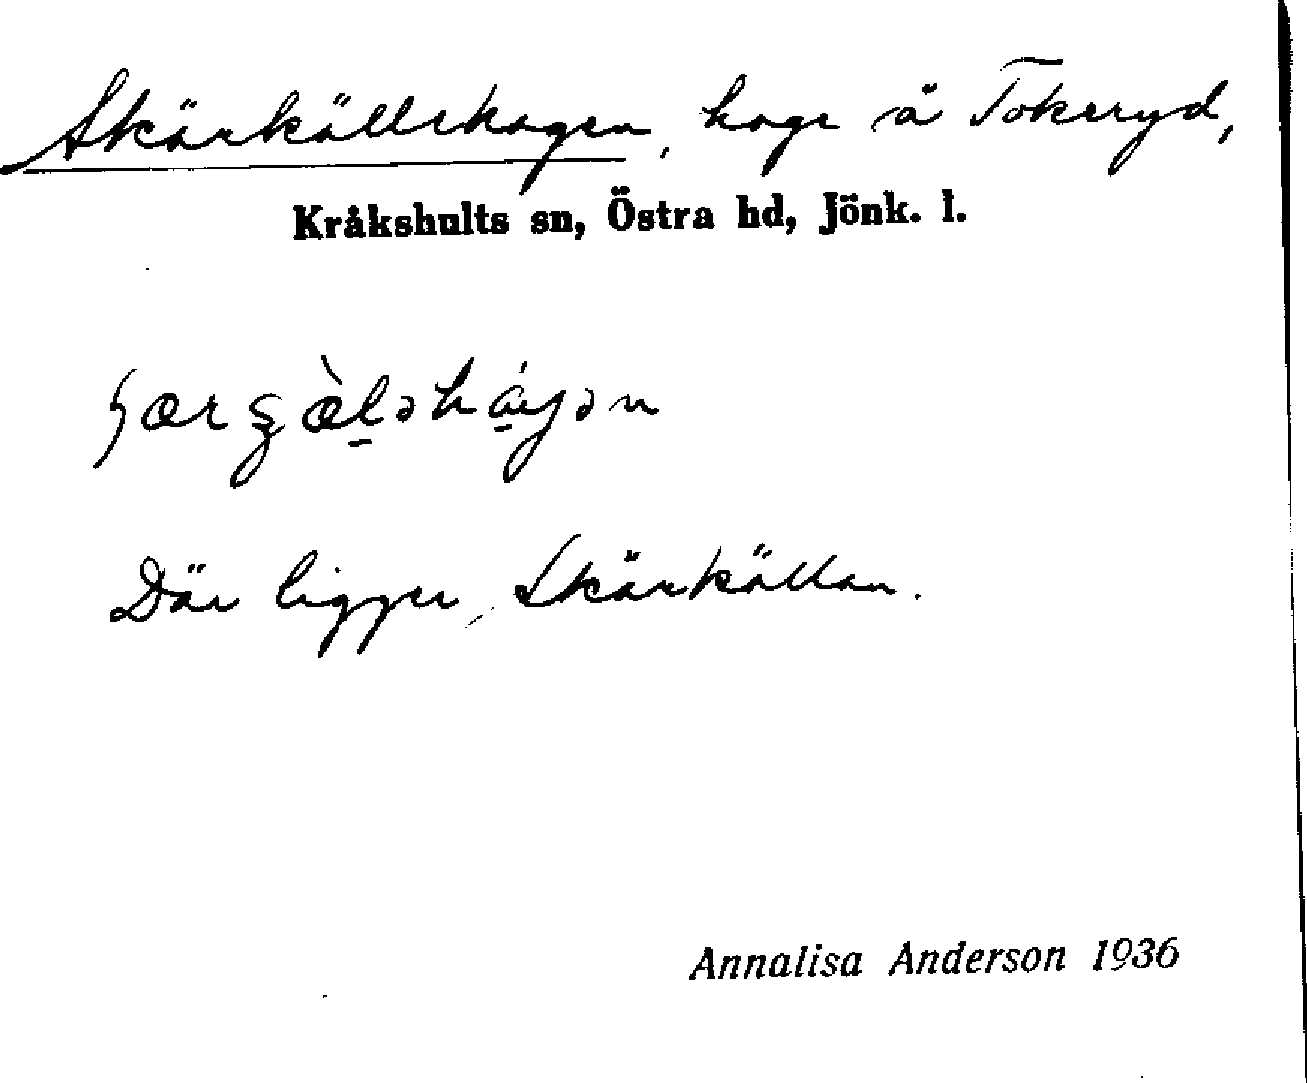 Skärkällehagen, hage å Tokeryd,
Kråkshults sn, Östra hd, Jönk. l.
Där ligger Skärkällan.
Annalisa Anderson 1936